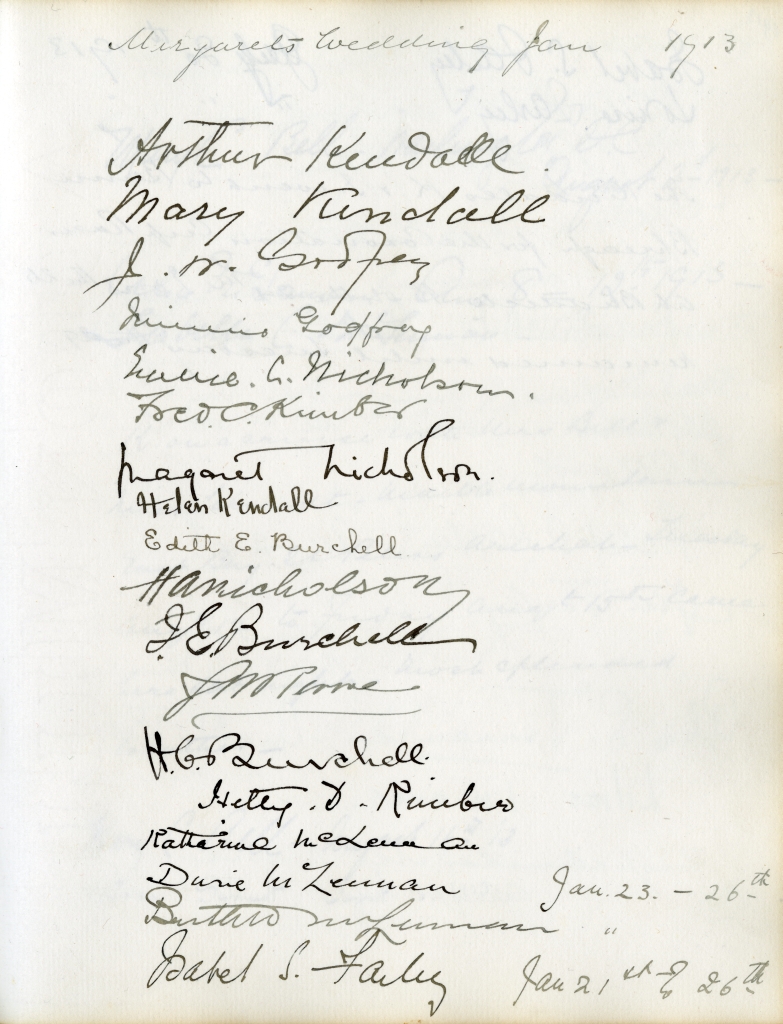 Margarets Wedding Jan 1913
Arthur Kendall
Mary Kendall
J. W. Godfrey
Minnie Godfrey
G. Nicholson.
Fred. C. Kimber
Margaret Nicholson.
Helen Kendall
Edith E. Burchell
HANicholson
J. E. Burchell
H. C. Burchell.
Hetty. D. Kimber
Katharine McLennan
McLennan Jan. 23. - 26th
McLennan "
Isabel S. Farley Jan 21st to 26th